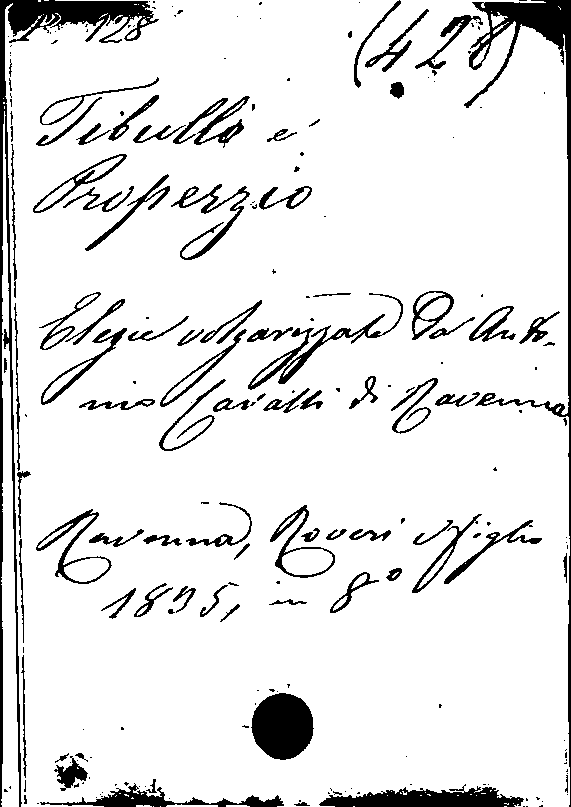 N. 128 (428)
Tibullo e
Properzio
Elegie volgarizzate da Anto-
nio Cavalli di Ravenna
Ravenna, Roveri e figlio
1835, in 8º